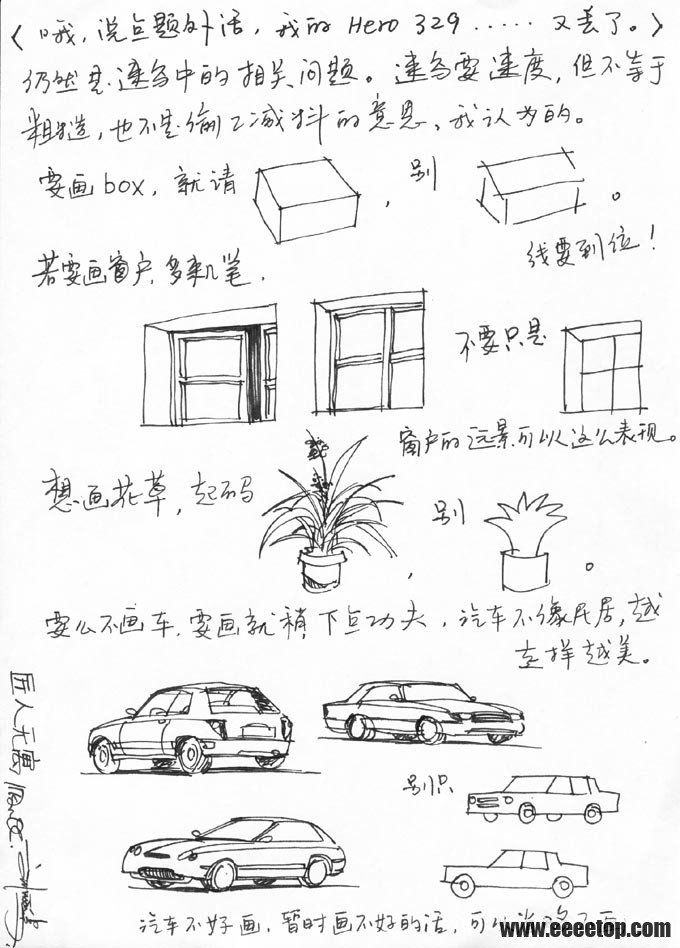 〈哦，说点题外话，我的 Hero 329 …… 又丢了。〉
仍然是速写中的相关问题。速写要速度，但不等于
粗糙，也不是偷工减料的意思，我认为的。
要画 box，就请 ， 别 。
线要到位！
若要画窗户，多来几笔，
不要只是
窗户的远景可以这么表现。
想画花草，起码 ， 别 。
要么不画车，要画就稍下点功夫，汽车不像民居，越
走样越美。
别只
汽车不好画，暂时画不好的话，可以
匠人无寓
www.eeeetop.com